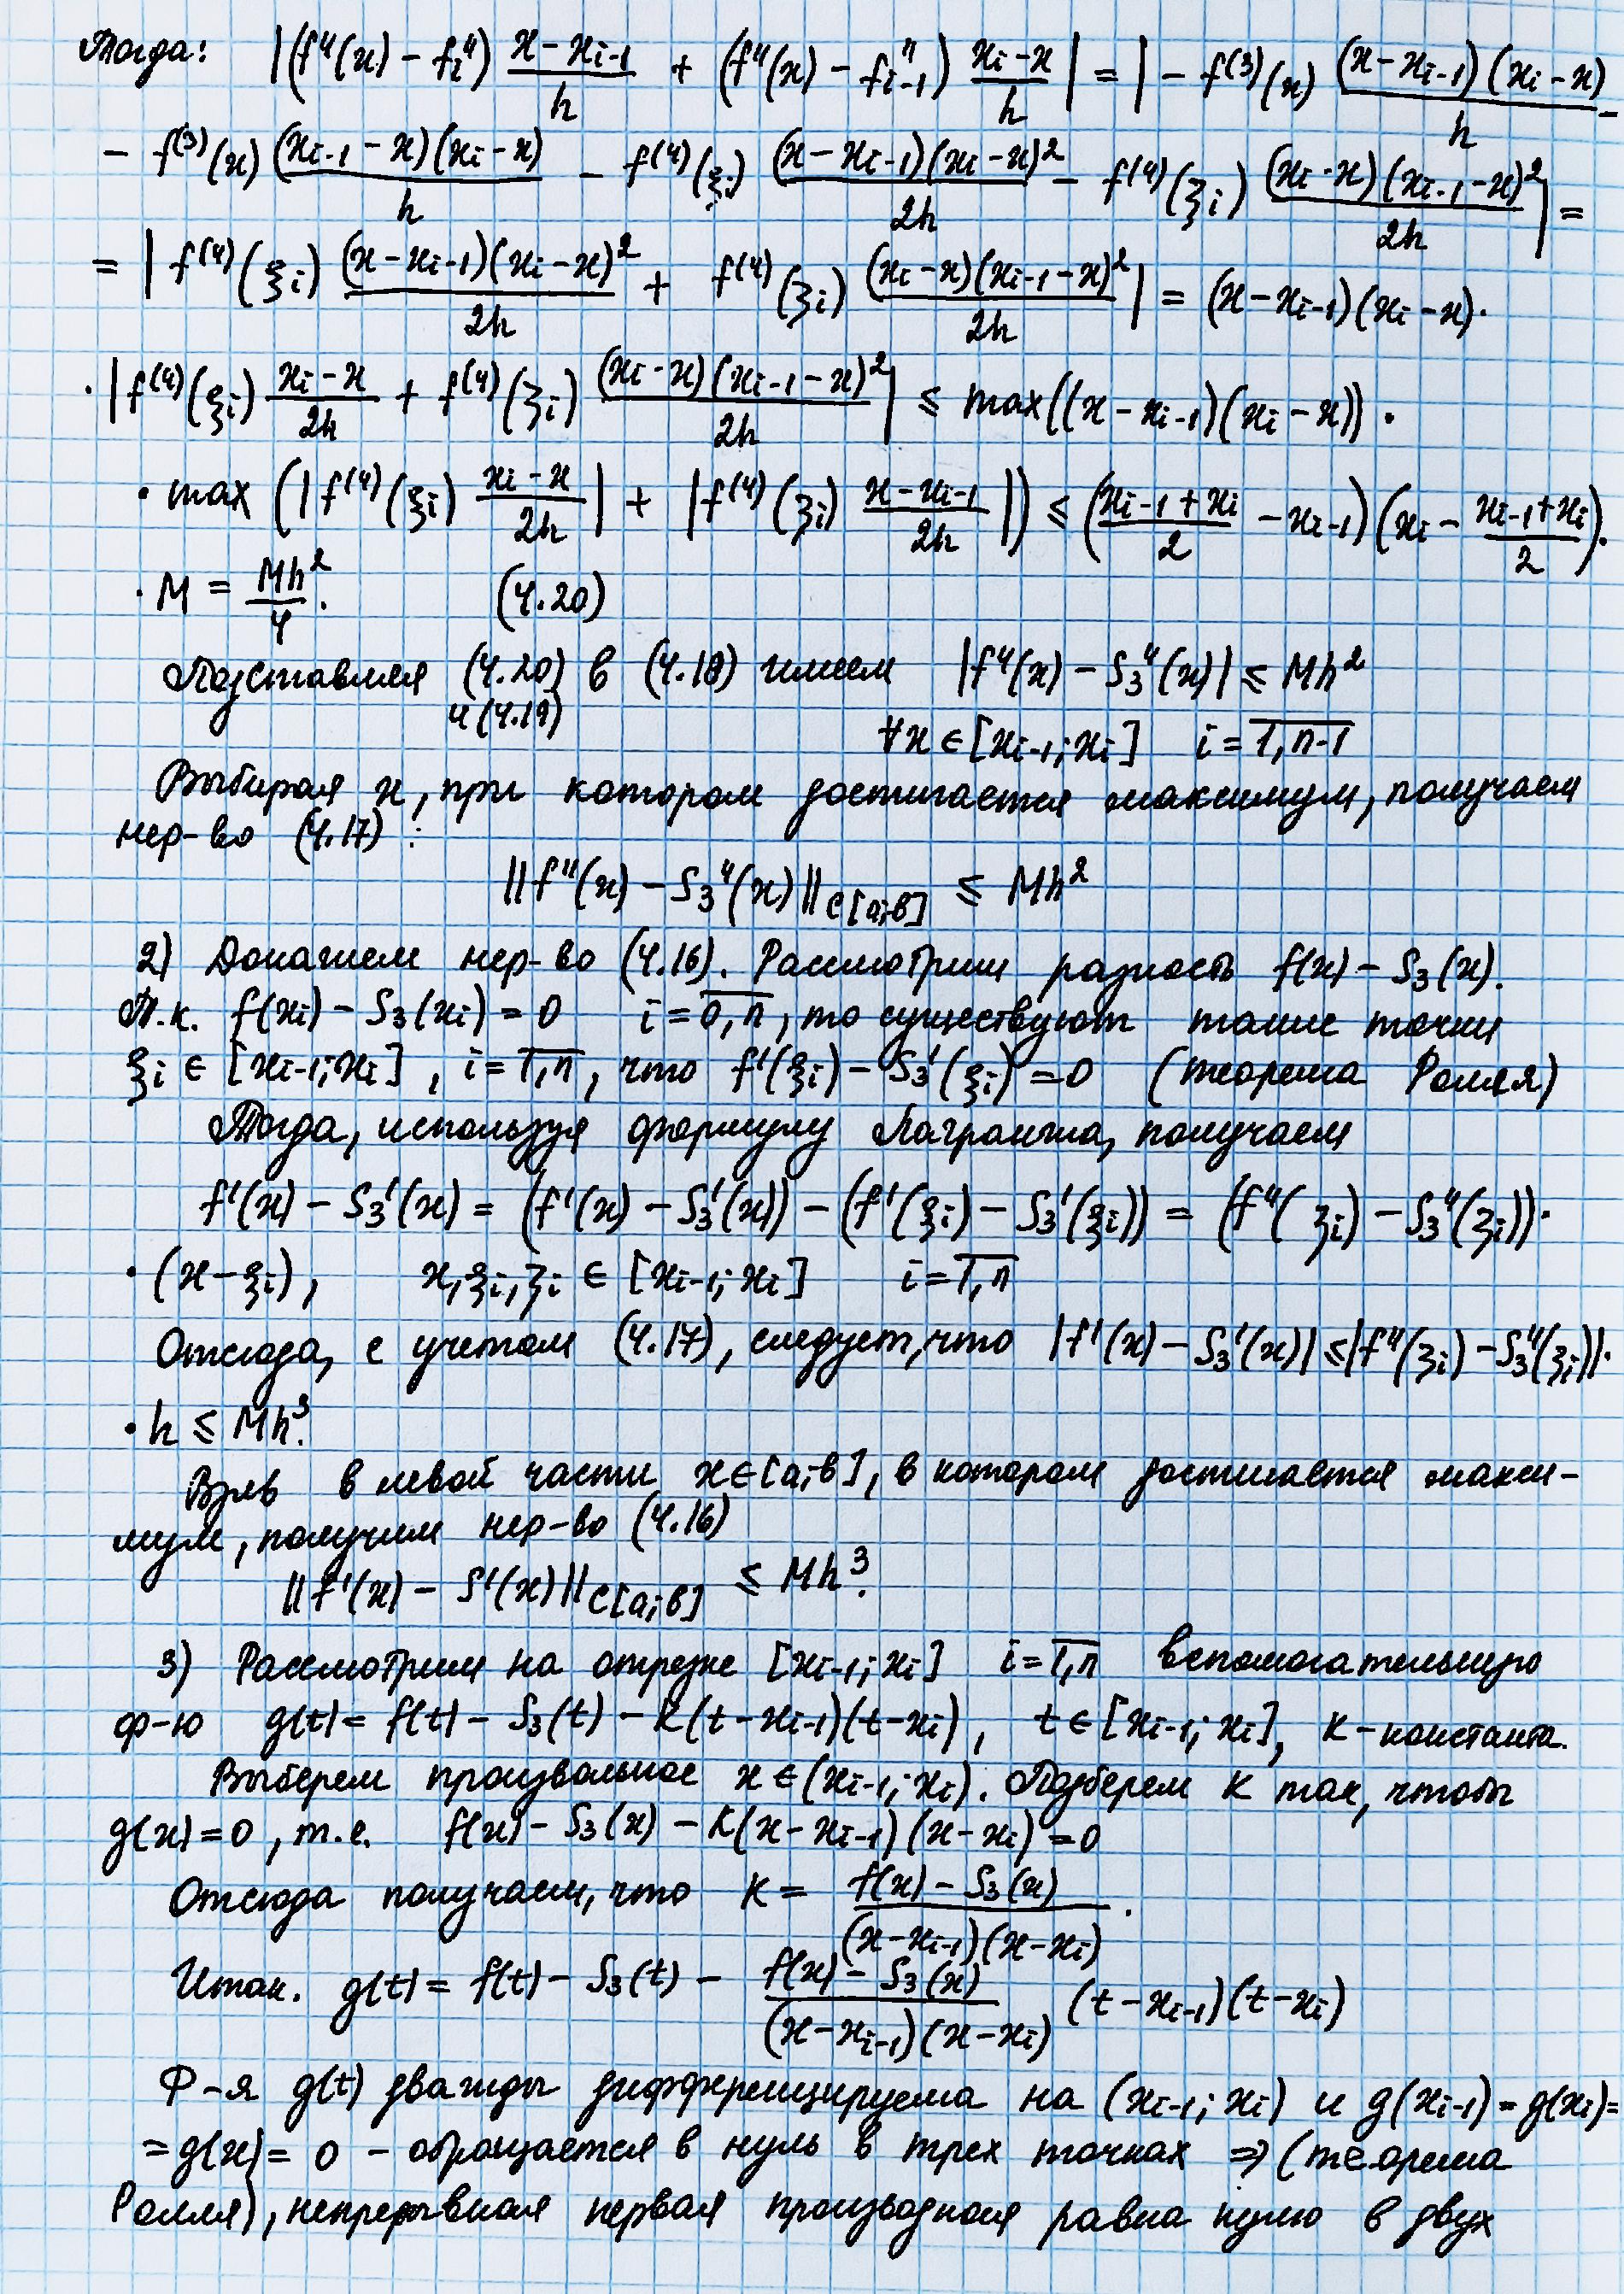 Тогда: |(f''(x) - f''_i) (x - x_{i-1})/h + (f''(x) - f''_{i-1}) (x_i - x)/h| = |- f^{(3)}(x) (x - x_{i-1})(x_i - x)/h -
- f^{(3)}(x) (x_{i-1} - x)(x_i - x)/h - f^{(4)}(ξ_i) (x - x_{i-1})(x_i - x)^2/2h - f^{(4)}(ζ_i) (x_i - x)(x_{i-1} - x)^2/2h| =
= |f^{(4)}(ξ_i) (x - x_{i-1})(x_i - x)^2/2h + f^{(4)}(ζ_i) (x_i - x)(x_{i-1} - x)^2/2h| = (x - x_{i-1})(x_i - x)·
·|f^{(4)}(ξ_i) (x_i - x)/2h + f^{(4)}(ζ_i) (x_i - x)(x_{i-1} - x)^2/2h| ≤ max((x - x_{i-1})(x_i - x)) ·
· max (|f^{(4)}(ξ_i) (x_i - x)/2h| + |f^{(4)}(ζ_i) (x - x_{i-1})/2h|) ≤ ((x_{i-1} + x_i)/2 - x_{i-1})(x_i - (x_{i-1} + x_i)/2)·
· M = Mh^2/4. (4.20)
Подставляя (4.20) в (4.18) имеем |f''(x) - S_3''(x)| ≤ Mh^2
и (4.19)
∀x ∈ [x_{i-1}; x_i] i = \overline{1, n-1}
Выбирая x, при котором достигается максимум, получаем
нер-во (4.17) :
||f''(x) - S_3''(x)||_{C[a;b]} ≤ Mh^2
2) Докажем нер-во (4.16). Рассмотрим разность f(x) - S_3(x).
Т.к. f(x_i) - S_3(x_i) = 0 i = \overline{0, n}, то существуют такие точки
ξ_i ∈ [x_{i-1}; x_i], i = \overline{1, n}, что f'(ξ_i) - S_3'(ξ_i) = 0 (теорема Ролля)
Тогда, используя формулу Лагранжа, получаем
f'(x) - S_3'(x) = (f'(x) - S_3'(x)) - (f'(ξ_i) - S_3'(ξ_i)) = (f''(ζ_i) - S_3''(ζ_i))·
· (x - ξ_i), x, ξ_i, ζ_i ∈ [x_{i-1}; x_i] i = \overline{1, n}
Отсюда, с учетом (4.17), следует, что |f'(x) - S_3'(x)| ≤ |f''(ζ_i) - S_3''(ζ_i)|·
· h ≤ Mh^3.
Взяв в левой части x ∈ [a; b], в котором достигается макси-
мум, получим нер-во (4.16)
||f'(x) - S'(x)||_{C[a;b]} ≤ Mh^3.
3) Рассмотрим на отрезке [x_{i-1}; x_i] i = \overline{1, n} вспомогательную
ф-ю g(t) = f(t) - S_3(t) - K(t - x_{i-1})(t - x_i), t ∈ [x_{i-1}; x_i], K - константа.
Выберем произвольное x ∈ (x_{i-1}; x_i). Подберем K так, чтобы
g(x) = 0, т.е. f(x) - S_3(x) - K(x - x_{i-1})(x - x_i) = 0
Отсюда получаем, что K = (f(x) - S_3(x))/((x - x_{i-1})(x - x_i)).
Итак. g(t) = f(t) - S_3(t) - (f(x) - S_3(x))/((x - x_{i-1})(x - x_i)) (t - x_{i-1})(t - x_i)
Ф-я g(t) дважды дифференцируема на (x_{i-1}; x_i) и g(x_{i-1}) = g(x_i) =
= g(x) = 0 - обращается в нуль в трех точках ⇒ (теорема
Ролля), непрерывная первая производная равна нулю в двух